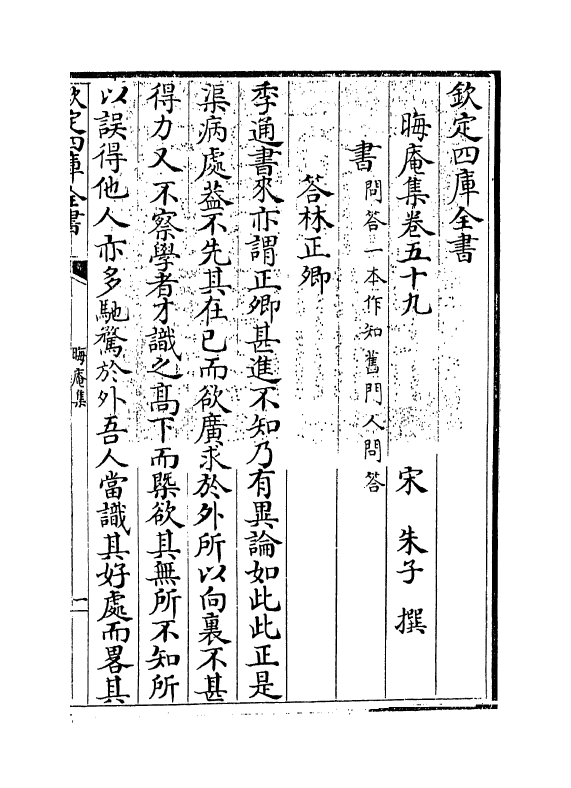 欽定四庫全書
晦庵集卷五十九　宋　朱子　撰
書問答一本作知舊門人問答
答林正卿
季通書來亦謂正卿甚進不知乃有異論如此此正是
渠病處葢不先其在已而欲廣求於外所以向裏不甚
得力又不察學者才識之髙下而槩欲其無所不知所
以誤得他人亦多馳騖於外吾人當識其好處而畧其
欽定四庫全書
晦庵集
一